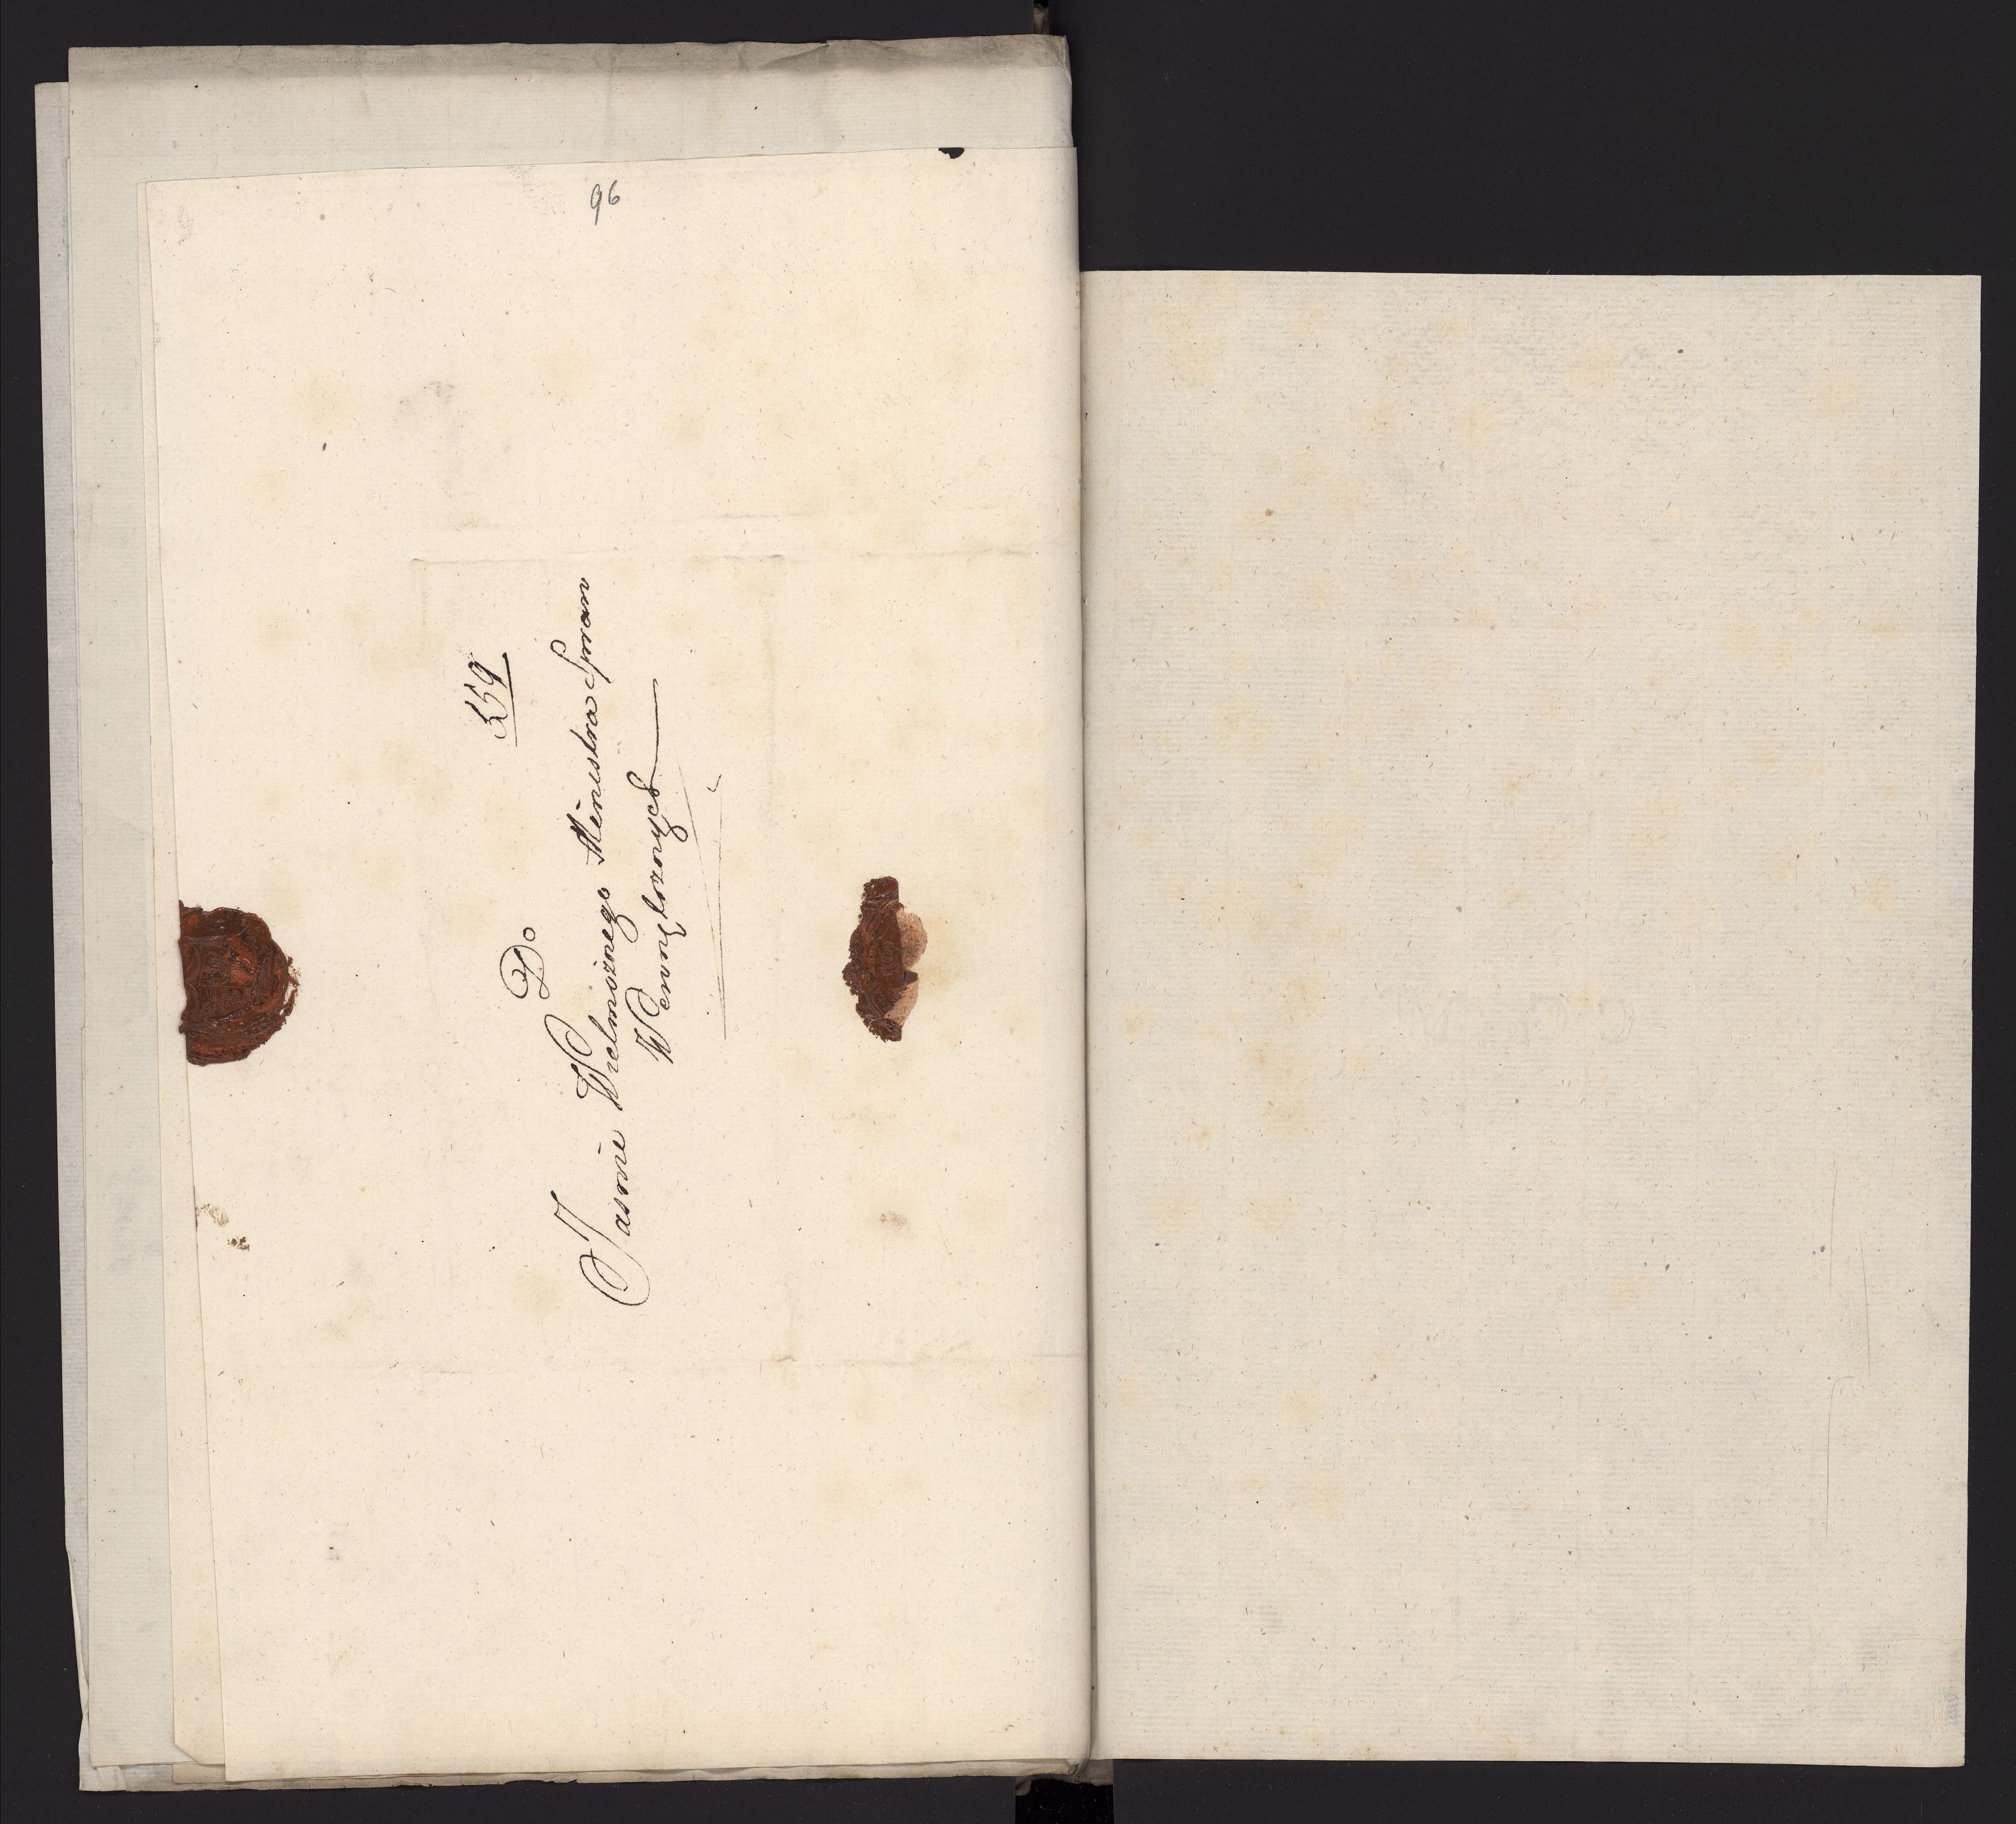 96
559
Do
Jasnie Wielmożnego Ministra Spraw
Wewnętrznych